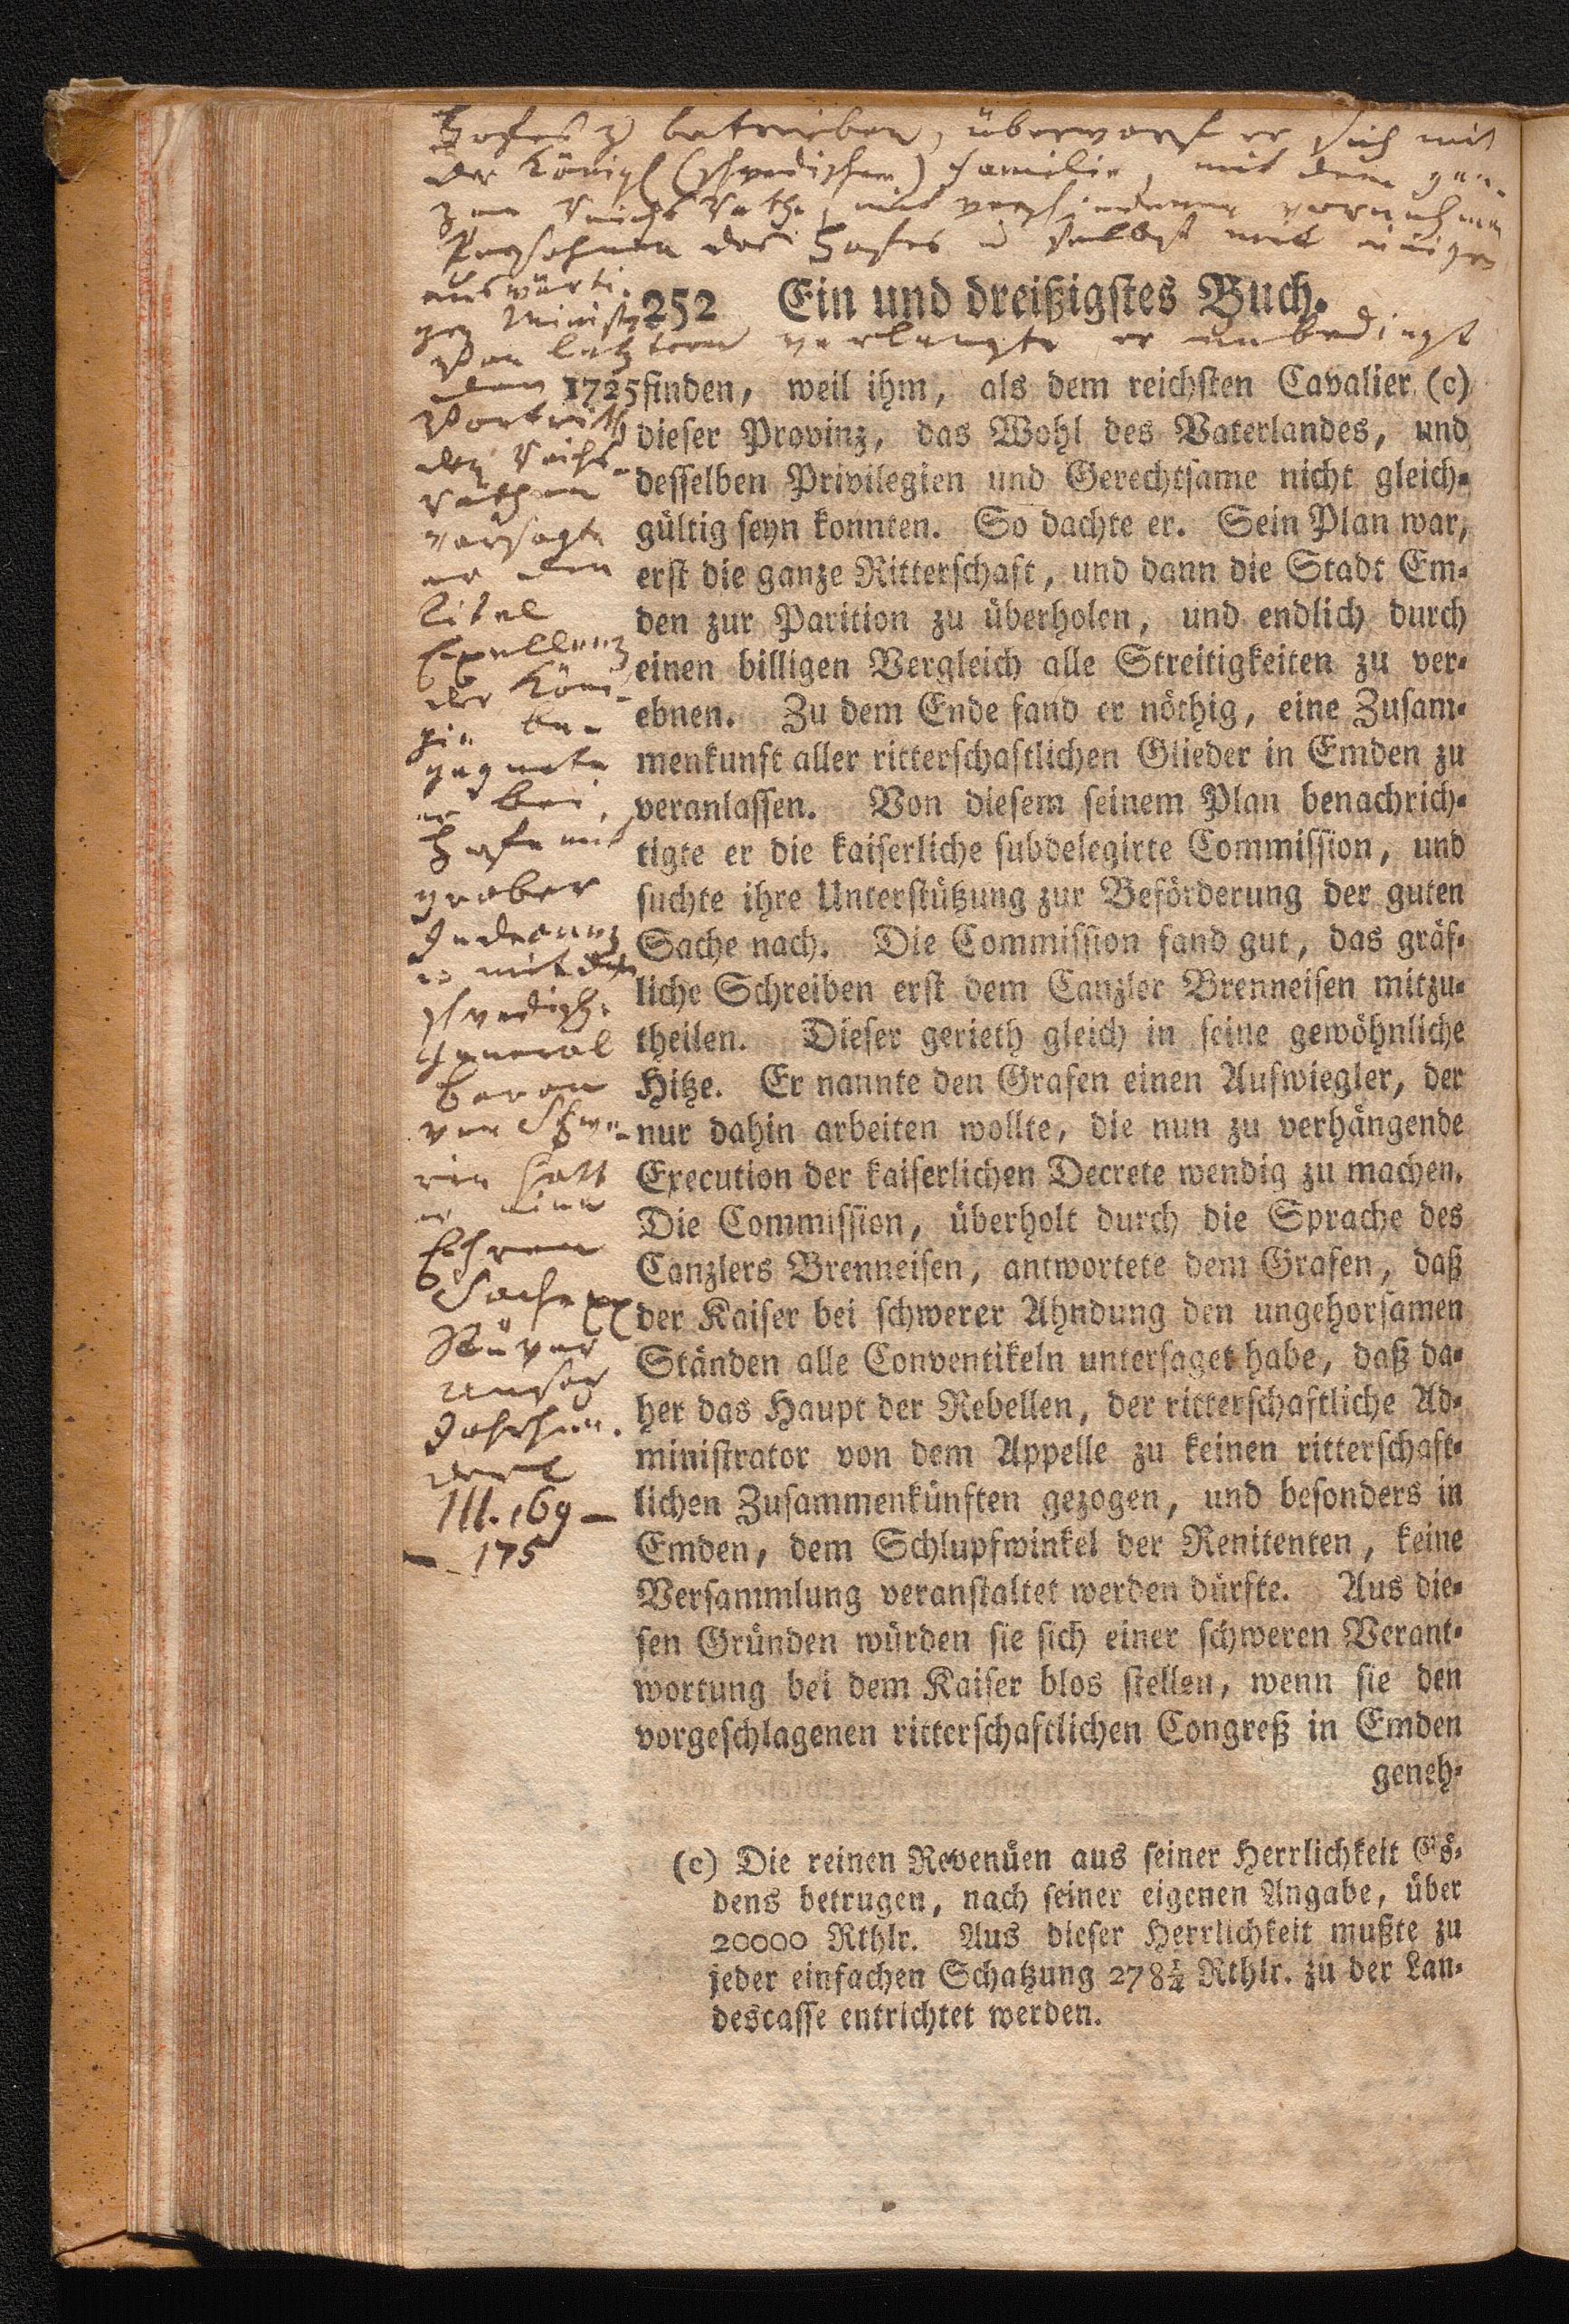 Hofes zu betreiben, überwarf er sich mit
der Königl (schwedischen) Familie, mit dem gan-
zen Reichs Rathe, mit verschiedenen vornehmen
Persohnen des Hofes u selbst mit einigen
auswärti-
gen Minist
Von letztern verlangte er unbedingt
den
Vortritt
den Reichs-
räthen
versagte
er den
Titel
Excellenz
der Köni-
gin be-
gegnete
er bei
Hofe mit
grober
u mit dem
schwedisch.
General
Baron
von Schwe-
rin hatt
er eine
Ehren
Sache
Stüver
unser
Jahrhun-
dert
III. 169 —
— 175
252 Ein und dreißigstes Buch.
1725 finden, weil ihm, als dem reichsten Cavalier (c)
dieser Provinz, das Wohl des Vaterlandes, und
desselben Privilegien und Gerechtsame nicht gleich-
gültig seyn konnten. So dachte er. Sein Plan war,
erst die ganze Ritterschaft, und dann die Stadt Em-
den zur Parition zu überholen, und endlich durch
einen billigen Vergleich alle Streitigkeiten zu ver-
ebnen. Zu dem Ende fand er nöthig, eine Zusam-
menkunft aller ritterschaftlichen Glieder in Emden zu
veranlassen. Von diesem seinem Plan benachrich-
tigte er die kaiserliche subdelegirte Commission, und
suchte ihre Unterstützung zur Beförderung der guten
Sache nach. Die Commission fand gut, das gräf-
liche Schreiben erst dem Canzler Brenneisen mitzu-
theilen. Dieser gerieth gleich in seine gewöhnliche
Hitze. Er nannte den Grafen einen Aufwiegler, der
nur dahin arbeiten wollte, die nun zu verhängende
Execution der kaiserlichen Decrete wendig zu machen.
Die Commission, überholt durch die Sprache des
Canzlers Brenneisen, antwortete dem Grafen, daß
der Kaiser bei schwerer Ahndung den ungehorsamen
Ständen alle Conventikeln untersaget habe, daß da-
her das Haupt der Rebellen, der ritterschaftliche Ad-
ministrator von dem Appelle zu keinen ritterschaft-
lichen Zusammenkünften gezogen, und besonders in
Emden, dem Schlupfwinkel der Renitenten, keine
Versammlung veranstaltet werden dürfte. Aus die-
sen Gründen würden sie sich einer schweren Verant-
wortung bei dem Kaiser blos stellen, wenn sie den
vorgeschlagenen ritterschaftlichen Congreß in Emden
geneh-
(c) Die reinen Revenüen aus seiner Herrlichkeit Gö-
dens betrugen, nach seiner eigenen Angabe, über
20000 Rthlr. Aus dieser Herrlichkeit mußte zu
jeder einfachen Schatzung 278¼ Rthlr. zu der Lan-
descasse entrichtet werden.